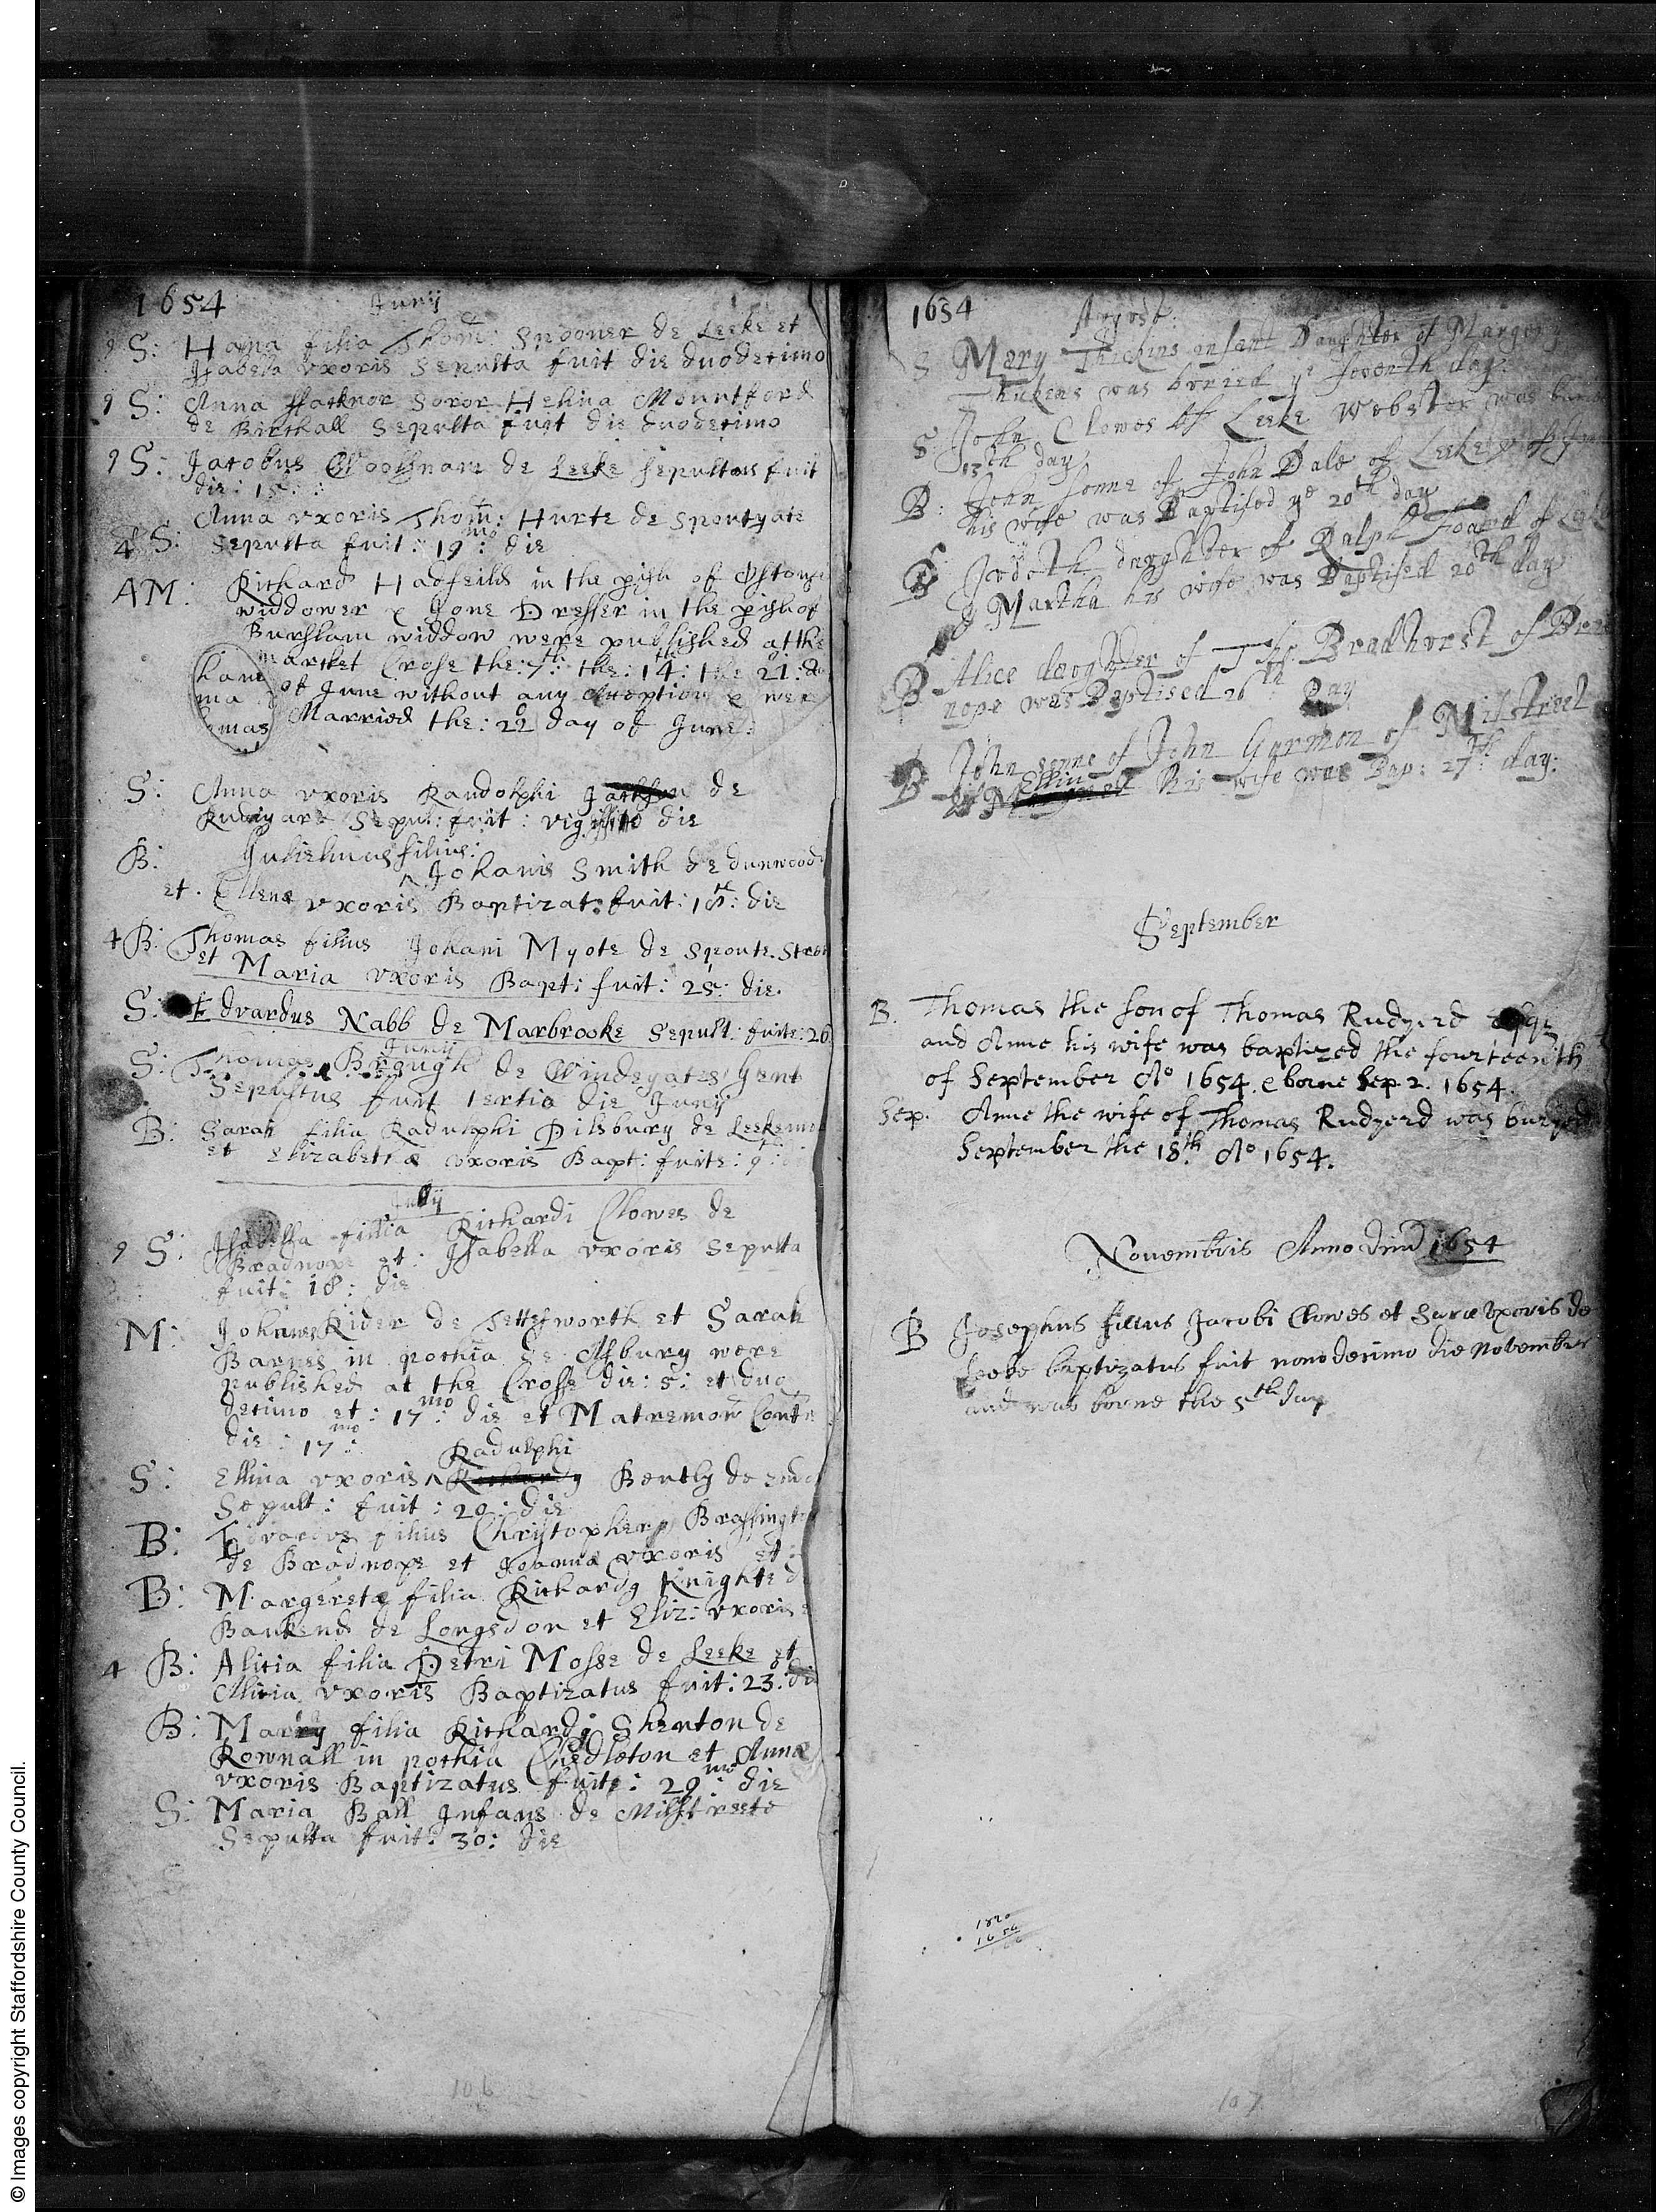 1654 Junij
9 S: Hana filia Thom: Spooner de Leeke et
Isabela vxoris Sepulta fuit die duodecimo
9 S: Anna soror Helina Mountford
de Birchall Sepulta fuit die duodecimo
9 S: Jacobus de Leeke sepultus fuit
die: 15::
Anna vxoris Thom: Hurte de Spoutgate
4 S: Sepulta fuit: 19mo: die
AM: Richard Hadfeild in the pish of
widdower & Jone Dresser in the pish of
Burslam widdow were published at the
market Crose the: 7th: the: 14: the 21: da
of June without any & wer
Married the: 22 day of June:
ham
ma
omas
S: Anna vxoris Randolphi Jackson de
Rudyard Sepul: fuit: die
Gulielmus filius:
B: Johanis Smith de dunwood
et. Ellena vxoris Baptizat: fuit: 18: die
4 B: Thomas filius Johani Myote de Spoute Stree
et Maria vxoris Bapt: fuit: 25: die.
S: Edvardus Nabb de Marbrooke Sepult: fuite: 26
Junij
S: Thomas Brough de Windeyates Gent
Sepultus fuit tertio die Junij
B: Sarah filia Radulphi Pilsbury de Leeke
et Elizabetha vxoris Bapt: fuite: 9:
Julij
9 S: Isabella filia Richardi Clowes de
Bradnope et: Isabella vxoris Sepulta
fuit: 18: die
M: Johannes Rider de Tettesworth et Sarah
Barnes in pochia de Asbury were
published at the Crosse die: 5: et duo
decimo et: 17mo: die et Matremon Contr
die: 17mo:
Radulphi
S: Ellina vxoris ^ Richardy Bently de
Sepult: fuit: 20: die
B: Edvardus filius Christopher Brassington
de Bradnope et Joanna vxoris et:
B: Margereta filia Richardy Knighte d
Bankend de Longsdon et Eliz: vxoris
4 B: Alicia filia Petri Mosse de Leeke et
Alicia vxoris Baptizatus fuit: 23: di
B: Marry filia Richardi Shenton de
Rownall in pochia Chedleton et Anna
vxoris Baptizatus fuite: 29mo: die
S: Maria Ball Infans de Milstreete
Sepulta fuit: 30: die
106
1654 August:
S Mary Thickins infant Daughter of Margery
Thickens was buried ye seventh day:
S John Clowes of Leeke Webster was buried
13th day
B: John sonne of John Dale of Leeke &
his wife was Baptised ye 20th day
B Judeth daughter of Ralph Foard of Leeke
& Martha his wife was Baptised 20th day
B Alice daughter of Bradhurst of Brad
nope was Baptised 26th Day
B John sonne of John Garmon of Milstreet
Ellin
& his wife was Bap: 27th: day:
September
B. Thomas the son of Thomas Rudyerd Esqr
and Anne his wife was baptized the fourteenth
of September Ao 1654. & borne Sep 2. 1654.
Sep. Anne the wife of Thomas Rudyerd was buryed
September the 18th. Ao 1654.
Novembris Anno dmi 1654
B Josephus filius Jacobi Clowes et Saræ vxoris de
Leeke baptizatus fuit nono decimo die November
and was borne the 5th day
1820
1654
166
107
© Images copyright Staffordshire County Council.